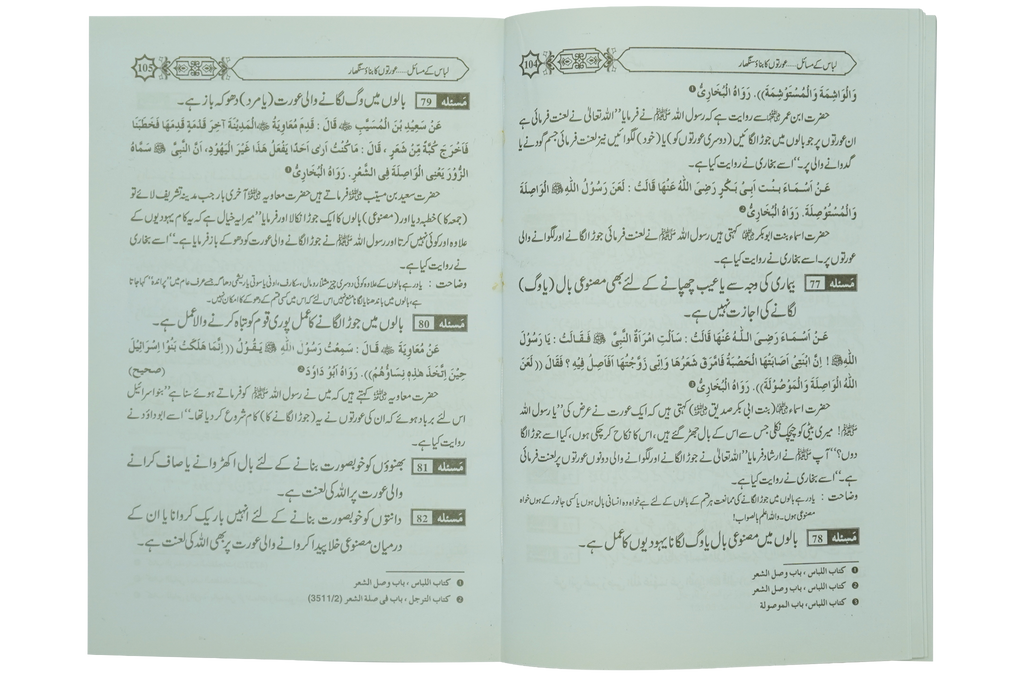 لباس کے مسائل ..... عورتوں کا بناؤ سنگھار
104
وَالْوَاشِمَةَ وَالْمُسْتَوْشِمَةَ)). رَوَاهُ الْبُخَارِيُّ ❶
حضرت ابن عمر رضی اللہ عنہما سے روایت ہے کہ رسول اللہ ﷺ نے فرمایا ”اللہ تعالیٰ نے لعنت فرمائی ہے
ان عورتوں پر جو بالوں میں جوڑ لگائیں (دوسری عورتوں کو) یا (خود) لگوائیں نیز لعنت فرمائی جسم گودنے یا
گدوانے والی پر۔“ اسے بخاری نے روایت کیا ہے۔
عَنْ اَسْمَاءَ بِنْتِ اَبِيْ بَكْرٍ رَضِيَ اللّٰهُ عَنْهَا قَالَتْ : لَعَنَ رَسُوْلُ اللّٰهِ ﷺ الْوَاصِلَةَ
وَالْمُسْتَوْصِلَةَ. رَوَاهُ الْبُخَارِيُّ ❷
حضرت اسماء بنت ابوبکر رضی اللہ عنہا کہتی ہیں رسول اللہ ﷺ نے لعنت فرمائی جوڑ لگانے اور لگوانے والی
عورتوں پر۔ اسے بخاری نے روایت کیا ہے۔
مسئلہ 77 بیماری کی وجہ سے یا عیب چھپانے کے لئے بھی مصنوعی بال (یا وگ)
لگانے کی اجازت نہیں ہے۔
عَنْ اَسْمَاءَ رَضِيَ اللّٰهُ عَنْهَا قَالَتْ : سَأَلَتِ امْرَأَةٌ النَّبِيَّ ﷺ فَقَالَتْ : يَا رَسُوْلَ
اللّٰهِ ﷺ ! اِنَّ ابْنَتِيْ اَصَابَتْهَا الْحَصْبَةُ فَامَّرَقَ شَعَرُهَا وَاِنِّيْ زَوَّجْتُهَا اَفَاَصِلُ فِيْهِ ؟ فَقَالَ ((لَعَنَ
اللّٰهُ الْوَاصِلَةَ وَالْمَوْصُوْلَةَ)). رَوَاهُ الْبُخَارِيُّ ❸
حضرت اسماء رضی اللہ عنہا (بنت ابی بکر صدیق رضی اللہ عنہ) کہتی ہیں کہ ایک عورت نے عرض کی ”یا رسول اللہ
ﷺ! میری بیٹی کو چیچک نکلی جس سے اس کے بال جھڑ گئے ہیں، اس کا نکاح کر چکی ہوں، کیا اسے جوڑ لگا
دوں؟“ آپ ﷺ نے ارشاد فرمایا ”اللہ تعالیٰ نے جوڑ لگانے اور لگوانے والی دونوں عورتوں پر لعنت فرمائی
ہے۔“ اسے بخاری نے روایت کیا ہے۔
وضاحت : یاد رہے بالوں میں جوڑ لگانے کی ممانعت ہر قسم کے بالوں کے لئے ہے خواہ وہ انسانی بال ہوں یا کسی جانور کے ہوں خواہ
مصنوعی ہوں۔ واللہ اعلم بالصواب!
مسئلہ 78 بالوں میں مصنوعی بال یا وگ لگانا یہودیوں کا عمل ہے۔
❶ کتاب اللباس ، باب وصل الشعر
❷ کتاب اللباس، باب وصل الشعر
❸ کتاب اللباس، باب الموصولة
لباس کے مسائل ..... عورتوں کا بناؤ سنگھار
105
مسئلہ 79 بالوں میں وگ لگانے والی عورت (یا مرد) دھوکہ باز ہے۔
عَنْ سَعِيْدِ بْنِ الْمُسَيَّبِ ﷺ قَالَ : قَدِمَ مُعَاوِيَةُ ﷺ الْمَدِيْنَةَ آخِرَ قَدْمَةٍ قَدِمَهَا فَخَطَبَنَا
فَاَخْرَجَ كُبَّةً مِّنْ شَعَرٍ ، قَالَ : مَا كُنْتُ اَرٰى اَحَدًا يَفْعَلُ هٰذَا غَيْرَ الْيَهُوْدِ، اَنَّ النَّبِيَّ ﷺ سَمَّاهُ
الزُّوْرَ يَعْنِى الْوَاصِلَةَ فِي الشَّعْرِ. رَوَاهُ الْبُخَارِيُّ ❶
حضرت سعید بن مسیب رضی اللہ عنہ فرماتے ہیں حضرت معاویہ رضی اللہ عنہ آخری بار جب مدینہ تشریف لائے تو
(جمعہ کا) خطبہ دیا اور (مصنوعی) بالوں کا ایک جوڑ نکالا اور فرمایا ”میرا یہ خیال ہے کہ یہ کام یہودیوں کے
علاوہ اور کوئی نہیں کرتا اور رسول اللہ ﷺ نے جوڑ لگانے والی عورت کو دھوکے باز فرمایا ہے۔“ اسے بخاری
نے روایت کیا ہے۔
وضاحت : یاد رہے بالوں کے علاوہ کوئی دوسری چیز مثلاً رومال، سکارف، اونی یا سوتی یا ریشمی دھاگہ جسے عرف عام میں ”پراندہ“ کہا جاتا
ہے، بالوں میں باندھنا یا لگانا منع نہیں اس لئے کہ اس میں کسی قسم کے دھوکے کا امکان نہیں۔
مسئلہ 80 بالوں میں جوڑ لگانے کا عمل پوری قوم کو تباہ کرنے والا عمل ہے۔
عَنْ مُعَاوِيَةَ ﷺ قَالَ : سَمِعْتُ رَسُوْلَ اللّٰهِ ﷺ يَقُوْلُ ((اِنَّمَا هَلَكَتْ بَنُوْا اِسْرَائِيْلَ
حِيْنَ اتَّخَذَ هٰذِهِ نِسَاؤُهُمْ)). رَوَاهُ اَبُوْ دَاوُدَ ❷ (صحيح)
حضرت معاویہ رضی اللہ عنہ کہتے ہیں کہ میں نے رسول اللہ ﷺ کو فرماتے ہوئے سنا ہے ”بنو اسرائیل
اس لئے برباد ہوئے کہ ان کی عورتوں نے یہ (جوڑ لگانے کا) کام شروع کر دیا تھا۔“ اسے ابوداؤد نے
روایت کیا ہے۔
مسئلہ 81 بھنوؤں کو خوبصورت بنانے کے لئے بال اکھڑوانے یا صاف کرانے
والی عورت پر اللہ کی لعنت ہے۔
مسئلہ 82 دانتوں کو خوبصورت بنانے کے لئے انہیں باریک کروانا یا ان کے
درمیان مصنوعی خلا پیدا کروانے والی عورت پر بھی اللہ کی لعنت ہے۔
❶ کتاب اللباس ، باب وصل الشعر
❷ کتاب الترجل ، باب فی صلة الشعر (3511/2)